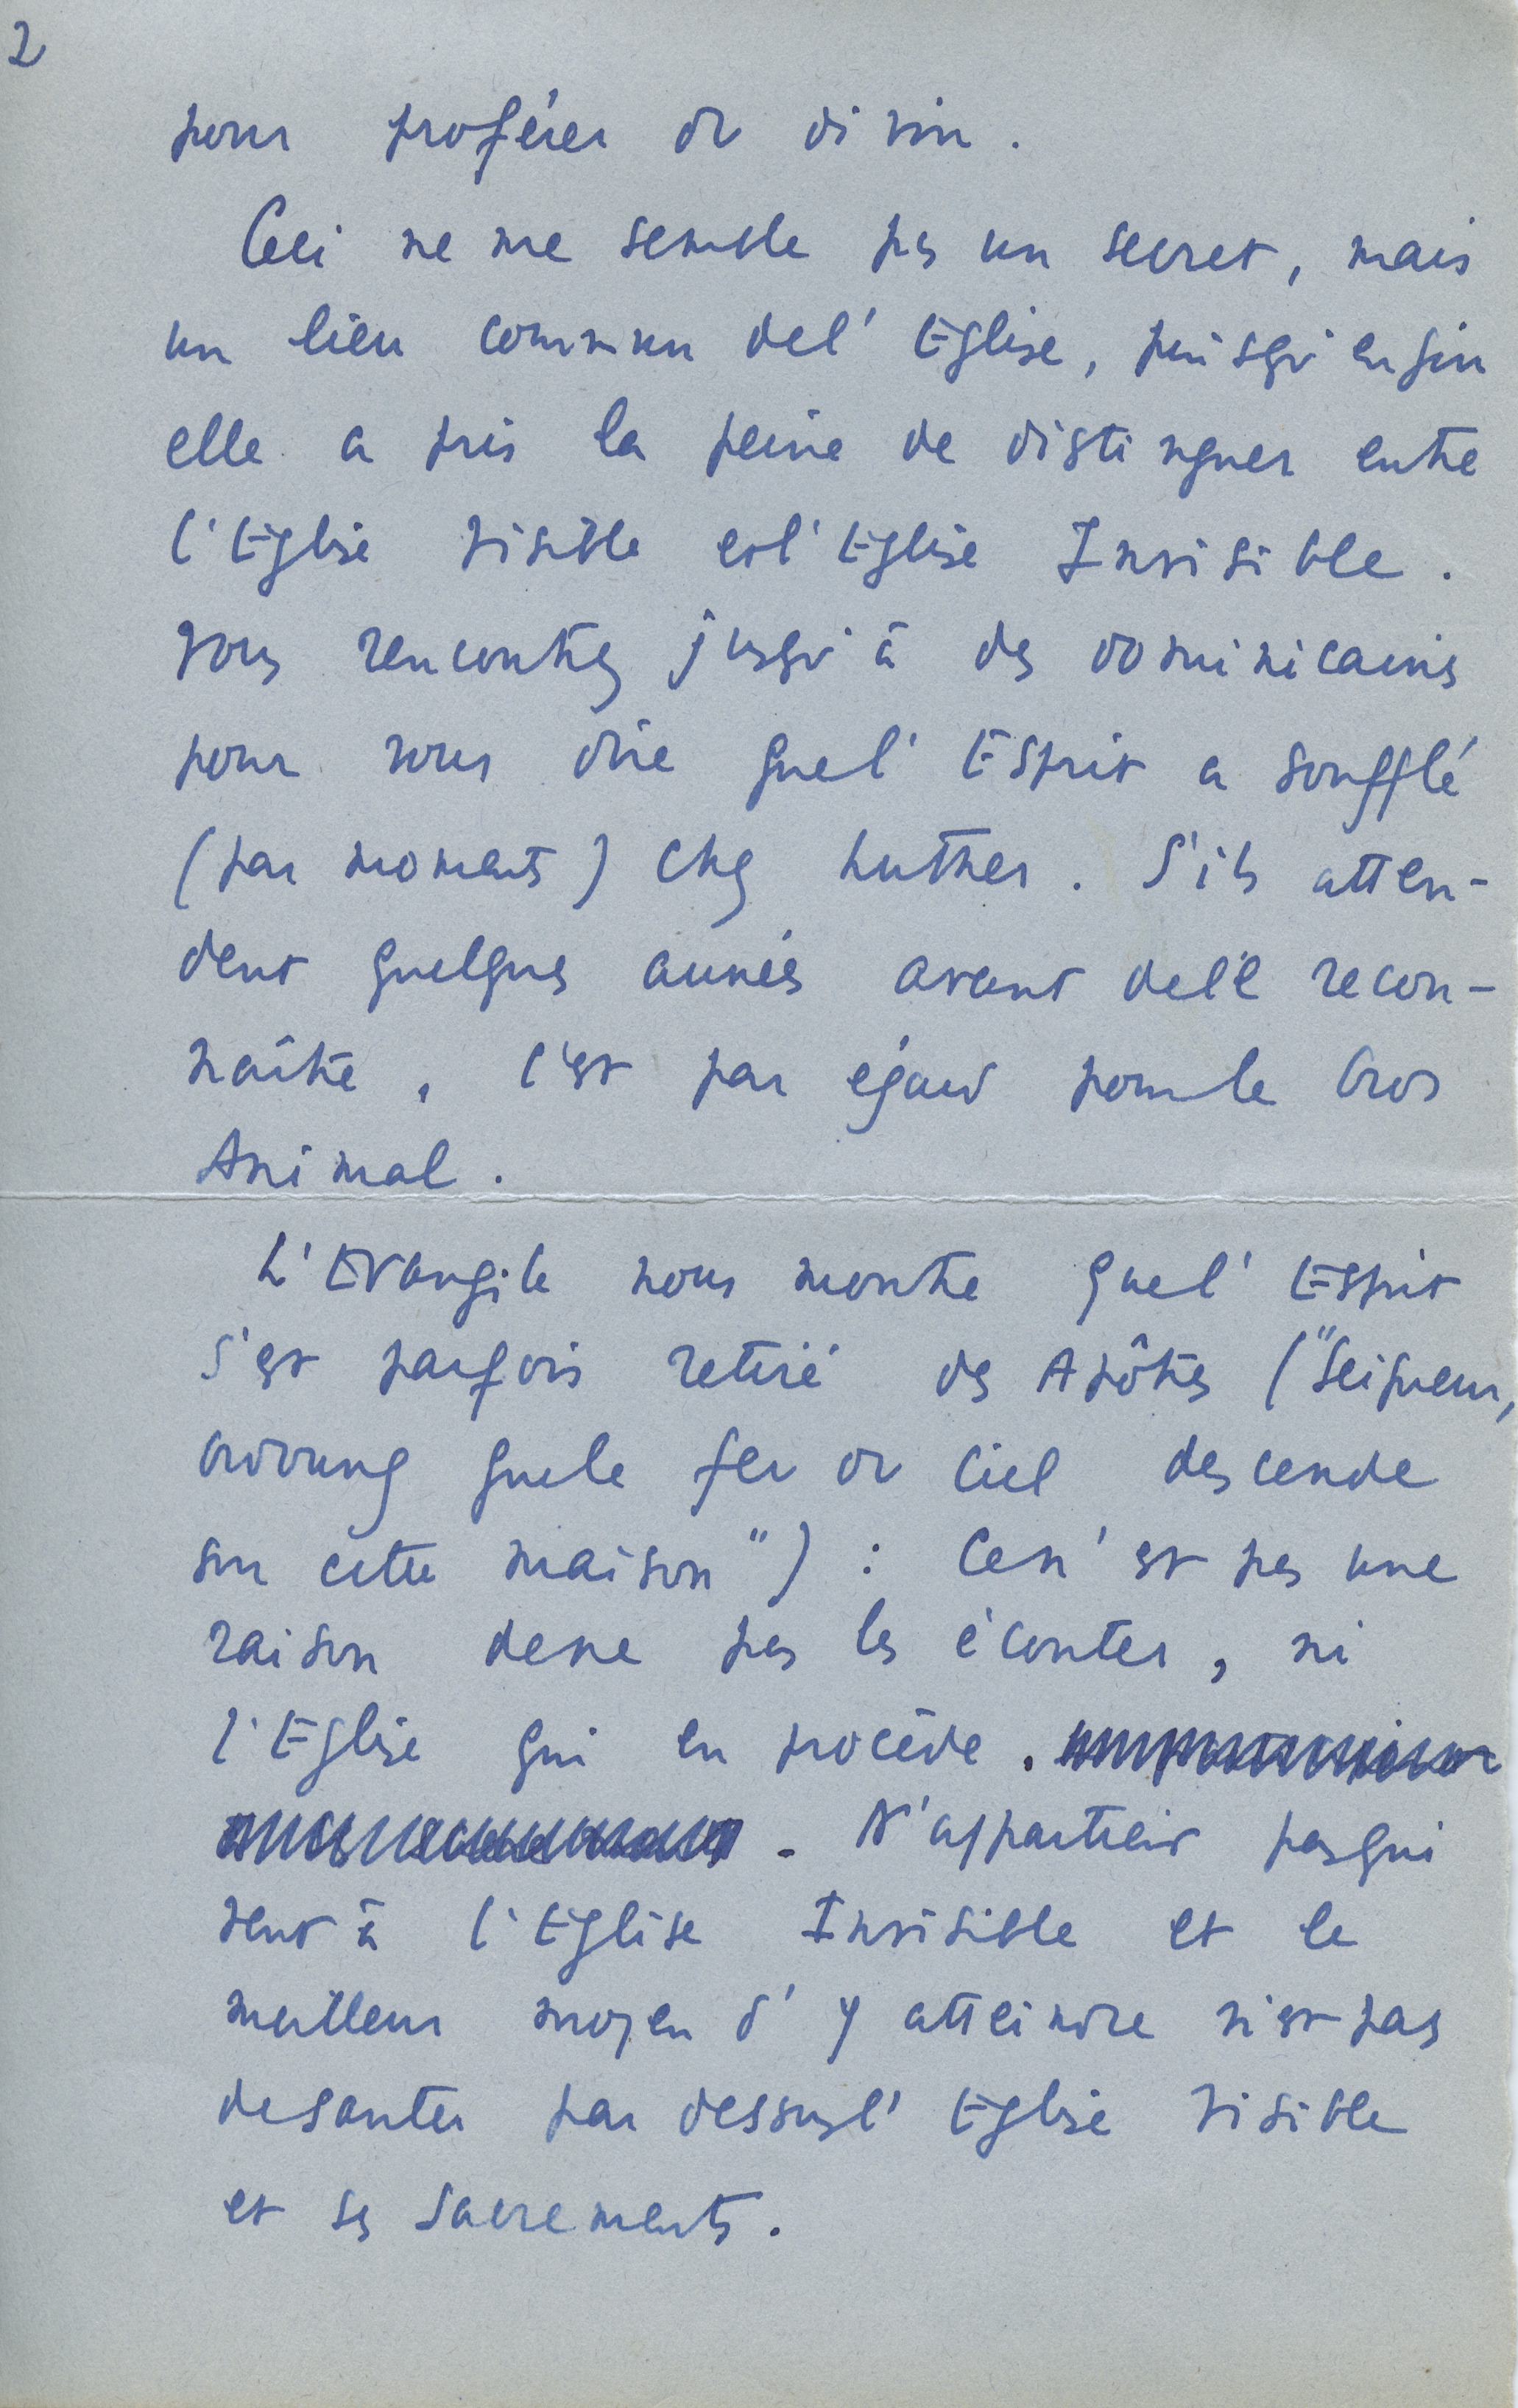 2
pour proférer du divin.
Ceci ne me semble pas un secret, mais
un lieu commun de l'Eglise, puisqu'enfin
elle a pris la peine de distinguer entre
l'Eglise Visible et l'Eglise Invisible.
Vous rencontrez jusqu'à des dominicains
pour vous dire que l'Esprit a soufflé
(par moments) chez Luther. S'ils atten-
dent quelques années avant de le recon-
naître, c'est par égard pour le Gros
Animal.
L'Evangile nous montre que l'Esprit
s'est parfois retiré des Apôtres ("Seigneur,
ordonnez que le feu du ciel descende
sur cette maison") : Ce n'est pas une
raison de ne pas les écouter, ni
l'Eglise qui en procède.
. N'appartient pas qui
veut à l'Eglise Invisible et le
meilleur moyen d'y atteindre n'est pas
de sauter par dessus l'Eglise Visible
et ses sacrements.